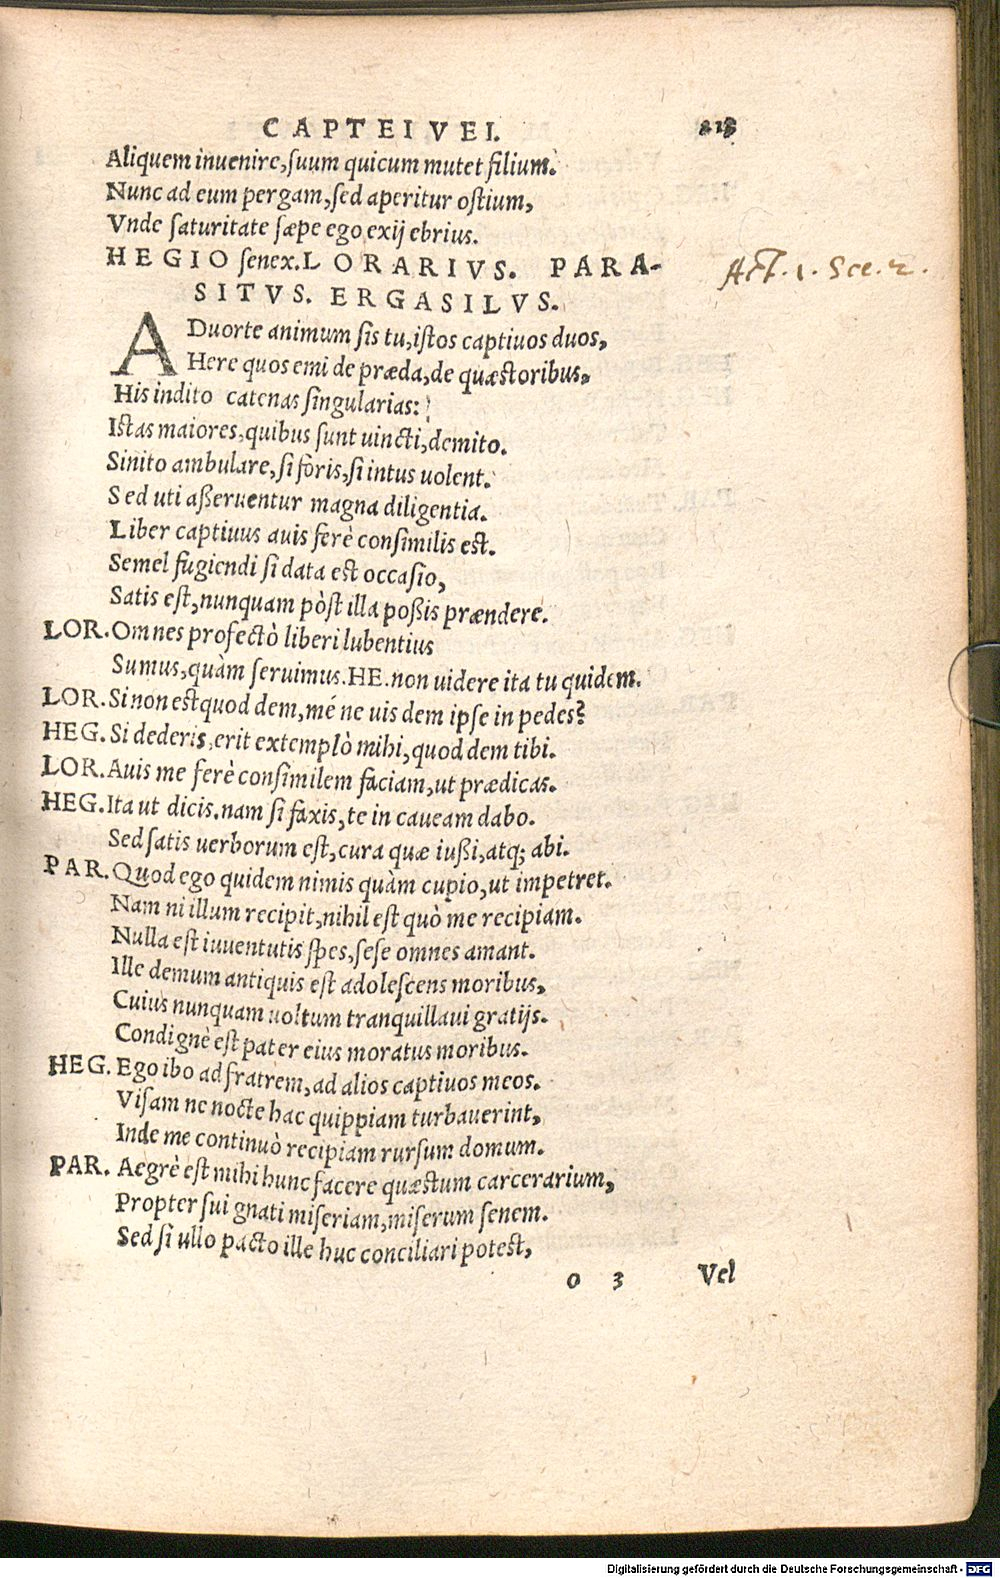 CAPTEIVEI. 213
Aliquem inuenire, suum quicum mutet filium.
Nunc ad eum pergam, sed aperitur ostium,
Vnde saturitate sæpe ego exij ebrius.
HEGIO senex. LORARIVS. PARA-
SITVS. ERGASILVS.
Act. 1. Sce. 2.
ADuorte animum sis tu, istos captiuos duos,
Here quos emi de præda, de quæstoribus,
His indito catenas singularias:
Istas maiores, quibus sunt uincti, demito.
Sinito ambulare, si foris, si intus uolent.
Sed uti aßeruentur magna diligentia.
Liber captiuus auis ferè consimilis est.
Semel fugiendi si data est occasio,
Satis est, nunquam pòst illa poßis prændere.
LOR. Omnes profectò liberi lubentius
Sumus, quàm seruimus. HE. non uidere ita tu quidem.
LOR. Si non est quod dem, mé ne uis dem ipse in pedes?
HEG. Si dederis, erit extemplò mihi, quod dem tibi.
LOR. Auis me ferè consimilem faciam, ut prædicas.
HEG. Ita ut dicis. nam si faxis, te in caueam dabo.
Sed satis uerborum est, cura quæ iußi, atq; abi.
PAR. Quod ego quidem nimis quàm cupio, ut impetret.
Nam ni illum recipit, nihil est quò me recipiam.
Nulla est iuuentutis spes, sese omnes amant.
Ille demum antiquis est adolescens moribus,
Cuius nunquam uoltum tranquillaui gratijs.
Condignè est pater eius moratus moribus.
HEG. Ego ibo ad fratrem, ad alios captiuos meos.
Visam ne nocte hac quippiam turbauerint,
Inde me continuò recipiam rursum domum.
PAR. Aegrè est mihi hunc facere quæstum carcerarium,
Propter sui gnati miseriam, miserum senem.
Sed si ullo pacto ille huc conciliari potest,
o 3 Vel
Digitalisierung gefördert durch die Deutsche Forschungsgemeinschaft - DFG